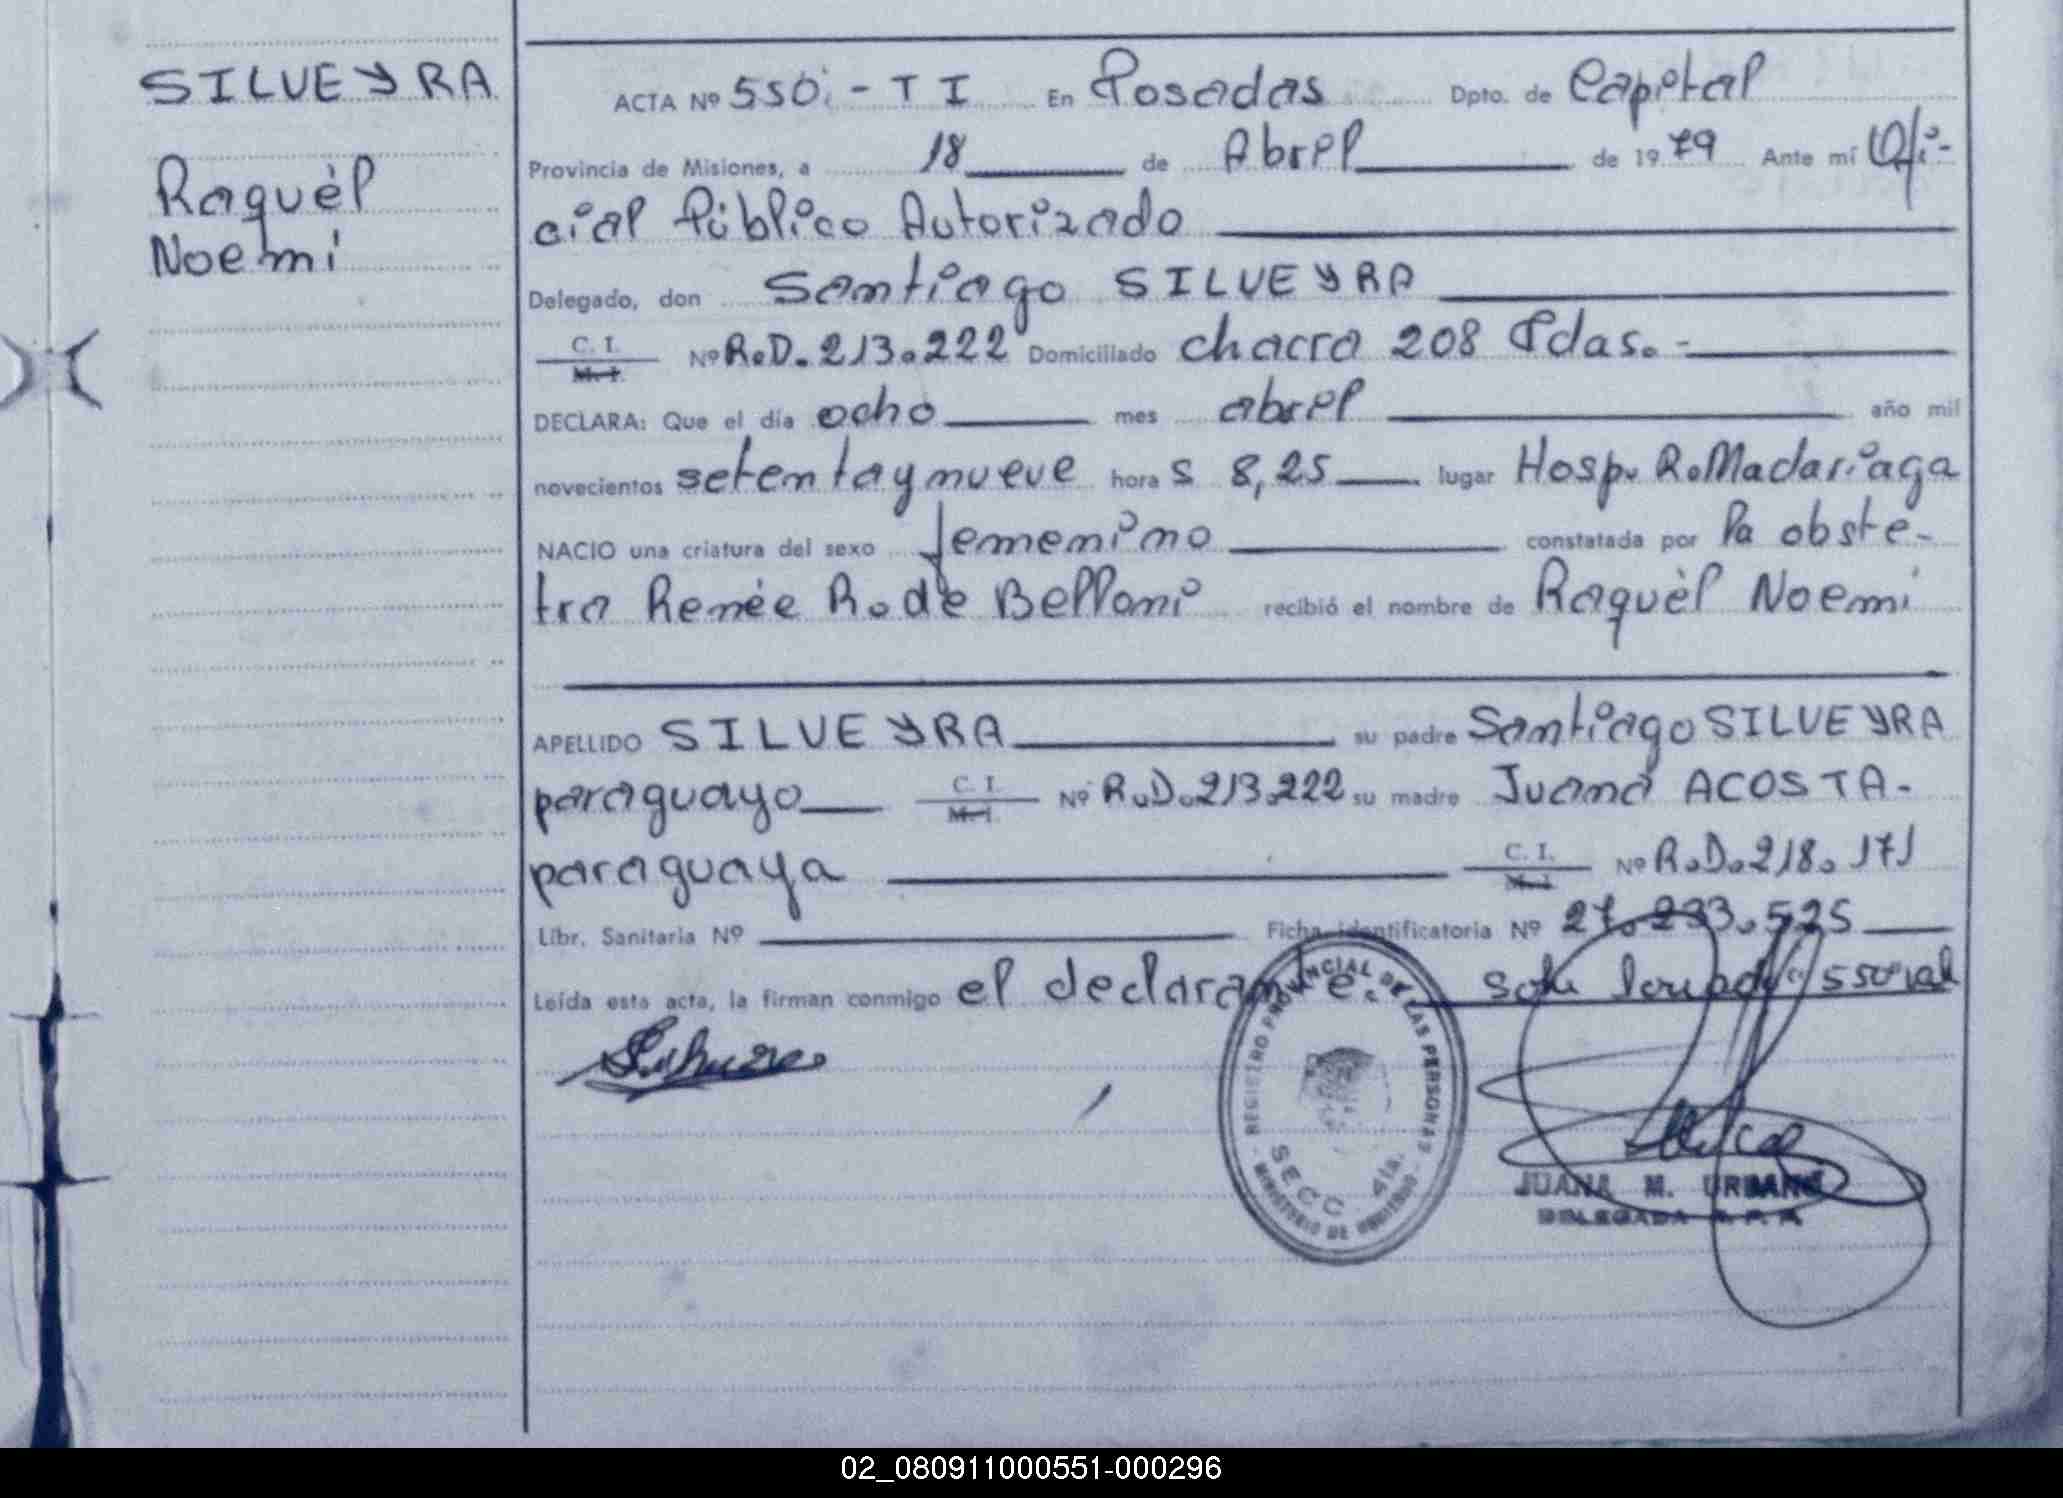 SILVEYRA
Raquèl
Noemi
ACTA Nº 550.- T I En Posadas Dpto. de Capital
Provincia de Misiones, a 18 de Abril de 1979 Ante mí Ofi-
cial Público Autorizado
Delegado, don Santiago SILVEYRA
C. I. M. I. Nº R.D. 213.222 Domiciliado chacra 208 Pdas.-
DECLARA: Que el día ocho mes abril año mil
novecientos setenta y nueve hora s 8,25 lugar Hosp. R. Madariaga
NACIO una criatura del sexo femenino constatada por la obste-
tra Renée R. de Belloni recibió el nombre de Raquèl Noemi
APELLIDO SILVEYRA su padre Santiago SILVEYRA
paraguayo C. I. M. I. Nº R.D. 213.222 su madre Juana ACOSTA-
paraguaya C. I. M. I. Nº R.D. 218.171
Libr. Sanitaria Nº Ficha identificatoria Nº 27.233.525
Leída esta acta, la firman conmigo el declarante. 550 val
REGISTRO PROVINCIAL DE LAS PERSONAS
SECC. 4ta.
MINISTERIO DE GOBIERNO
JUANA M. URBANO
DELEGADA R. P. P.
02_080911000551-000296